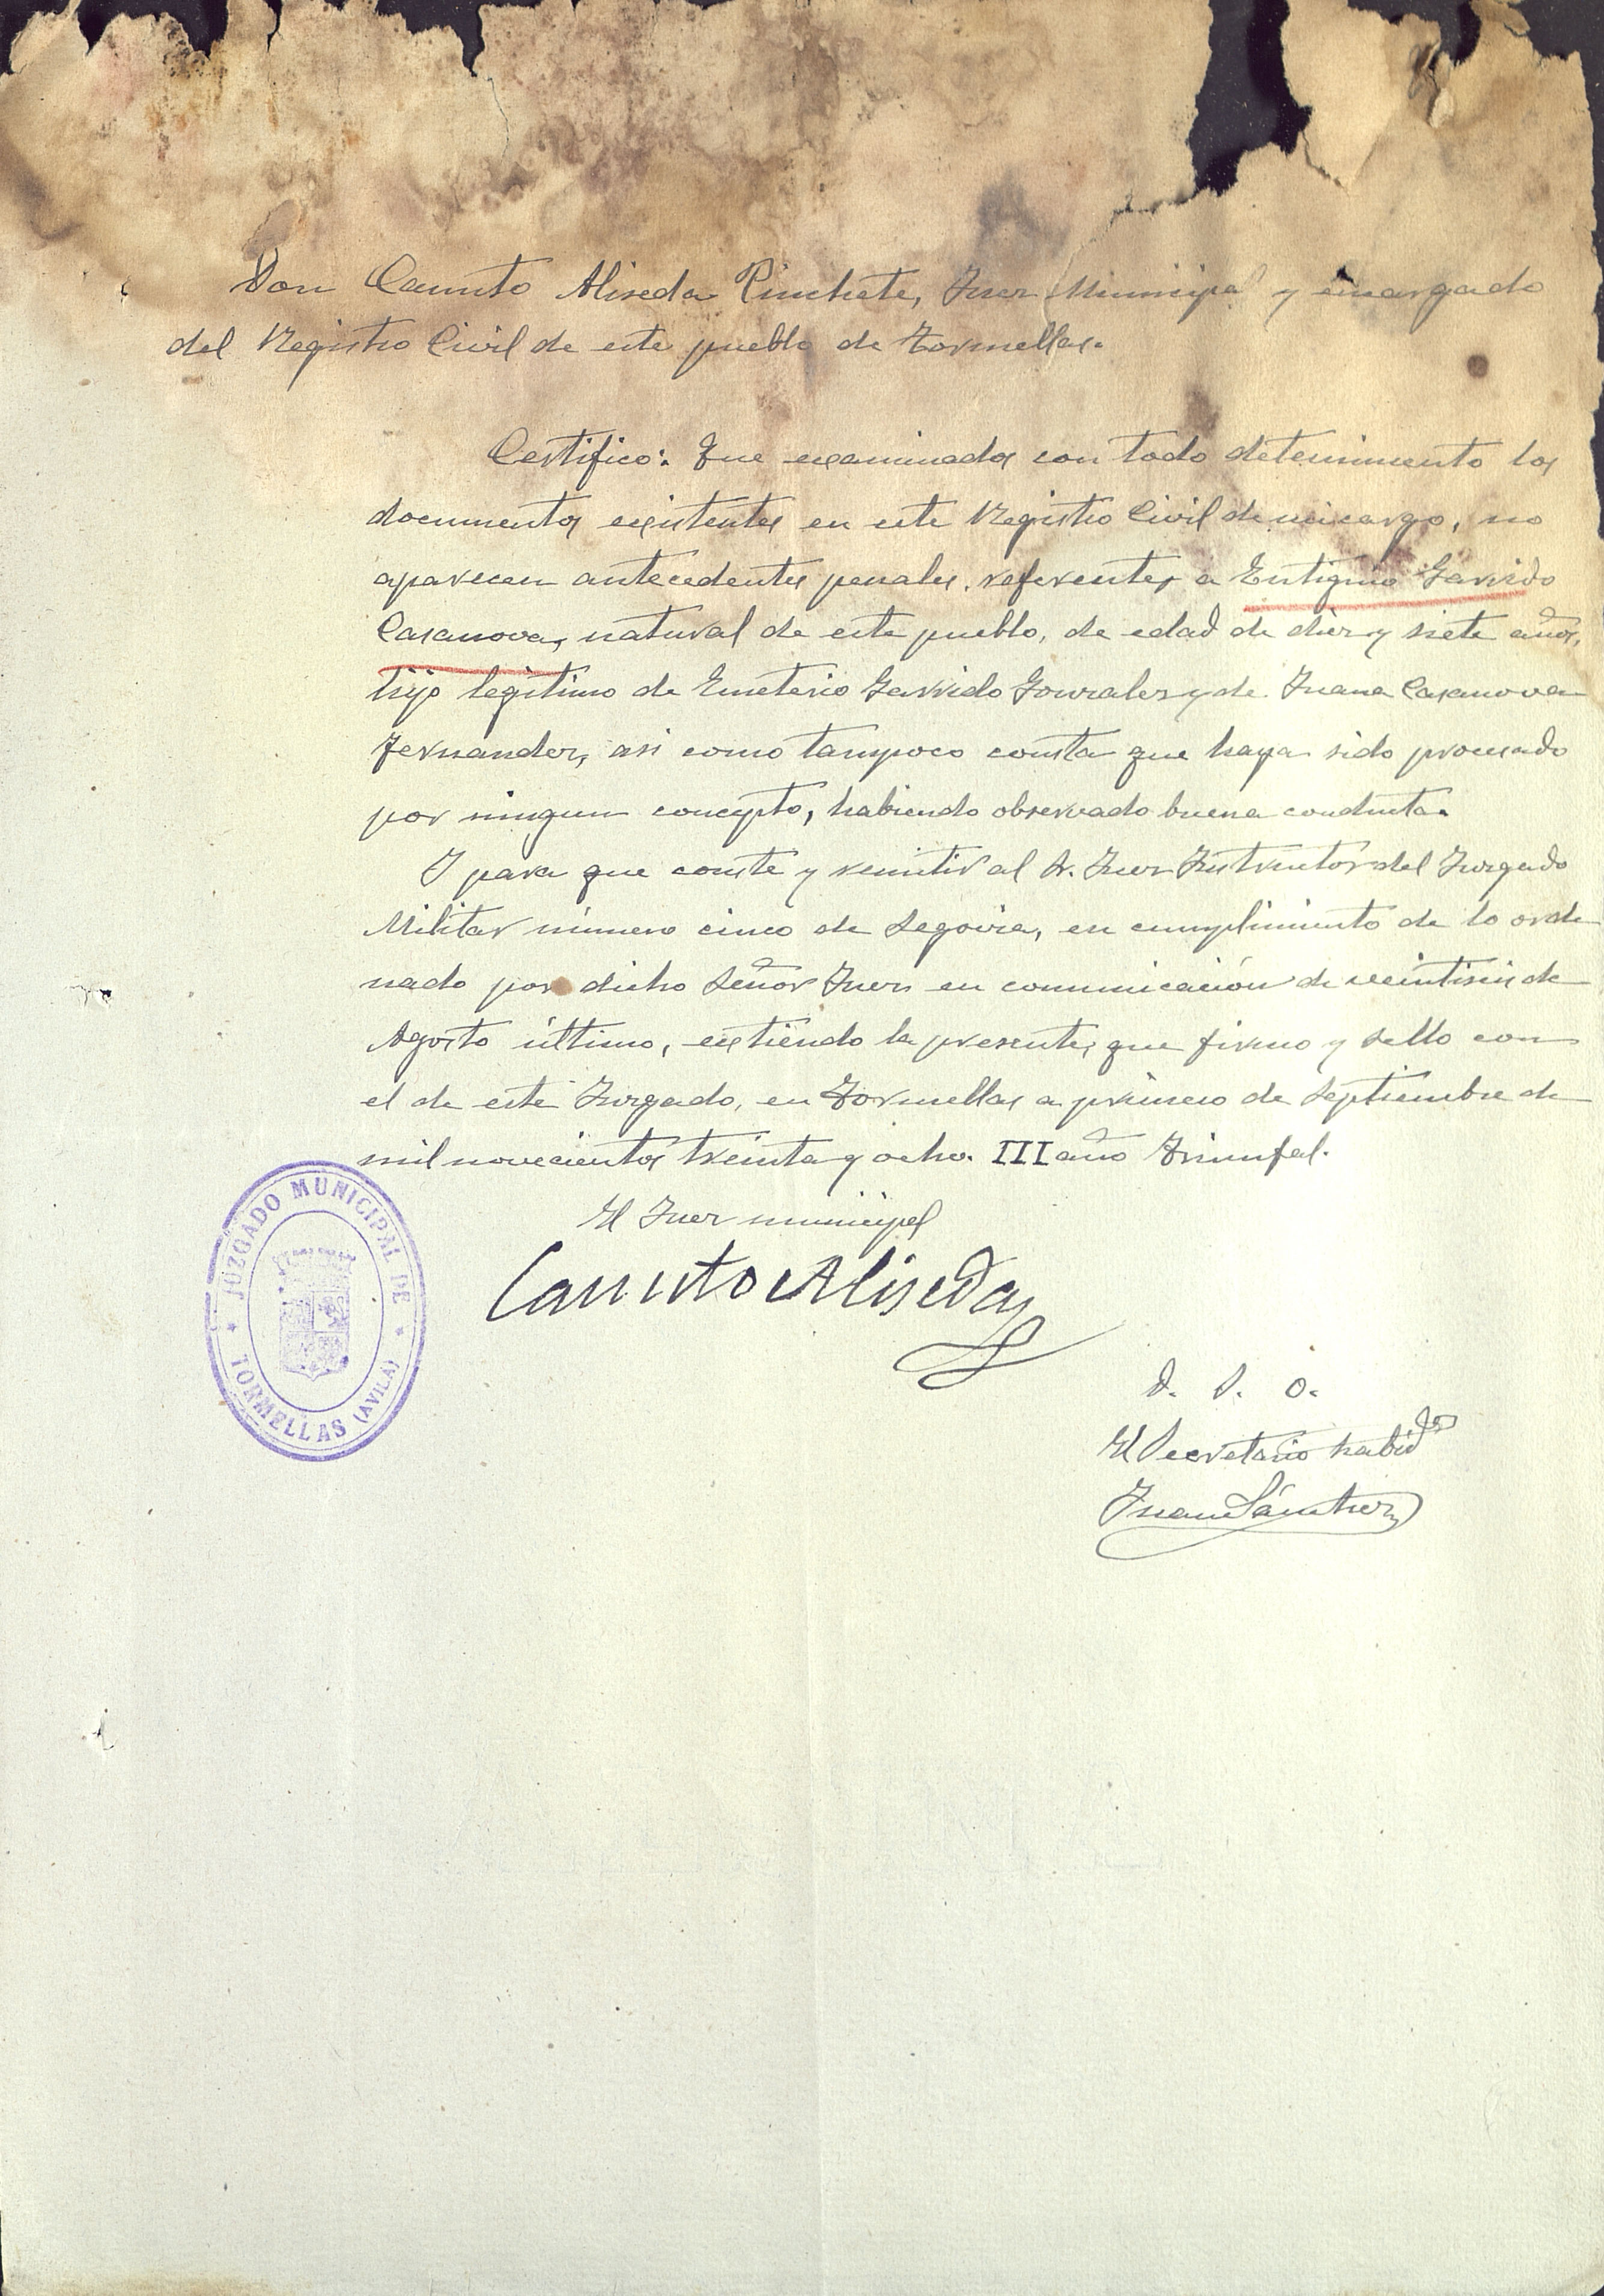 Don Canuto Aliseda Pinchete, Juez Municipal y encargado
del Registro Civil de este pueblo de Tormellas.
Certifico: Que examinados con todo detenimiento los
documentos existentes en este Registro Civil de mi cargo, no
aparecen antecedentes penales, referentes a Eutiquio Garrido
Casanova, natural de este pueblo, de edad de diez y siete años,
hijo legitimo de Emeterio Garrido Gonzalez y de Juana Casanova
Fernandez, asi como tampoco consta que haya sido procesado
por ningun concepto, habiendo observado buena conducta.
Y para que conste y remitir al Sr. Juez Instructor del Juzgado
Militar número cinco de Segovia, en cumplimiento de lo orde
nado por dicho Señor Juez en comunicación de veintiseis de
Agosto último, extiendo la presente, que firmo y sello con
el de este Juzgado, en Tormellas a primero de Septiembre de
mil novecientos treinta y ocho. III año Triunfal.
El Juez municipal
Canuto Aliseda
JUZGADO MUNICIPAL DE
TORMELLAS (AVILA)
D. S. O.
El Secretario habidº
Juan Sánchez